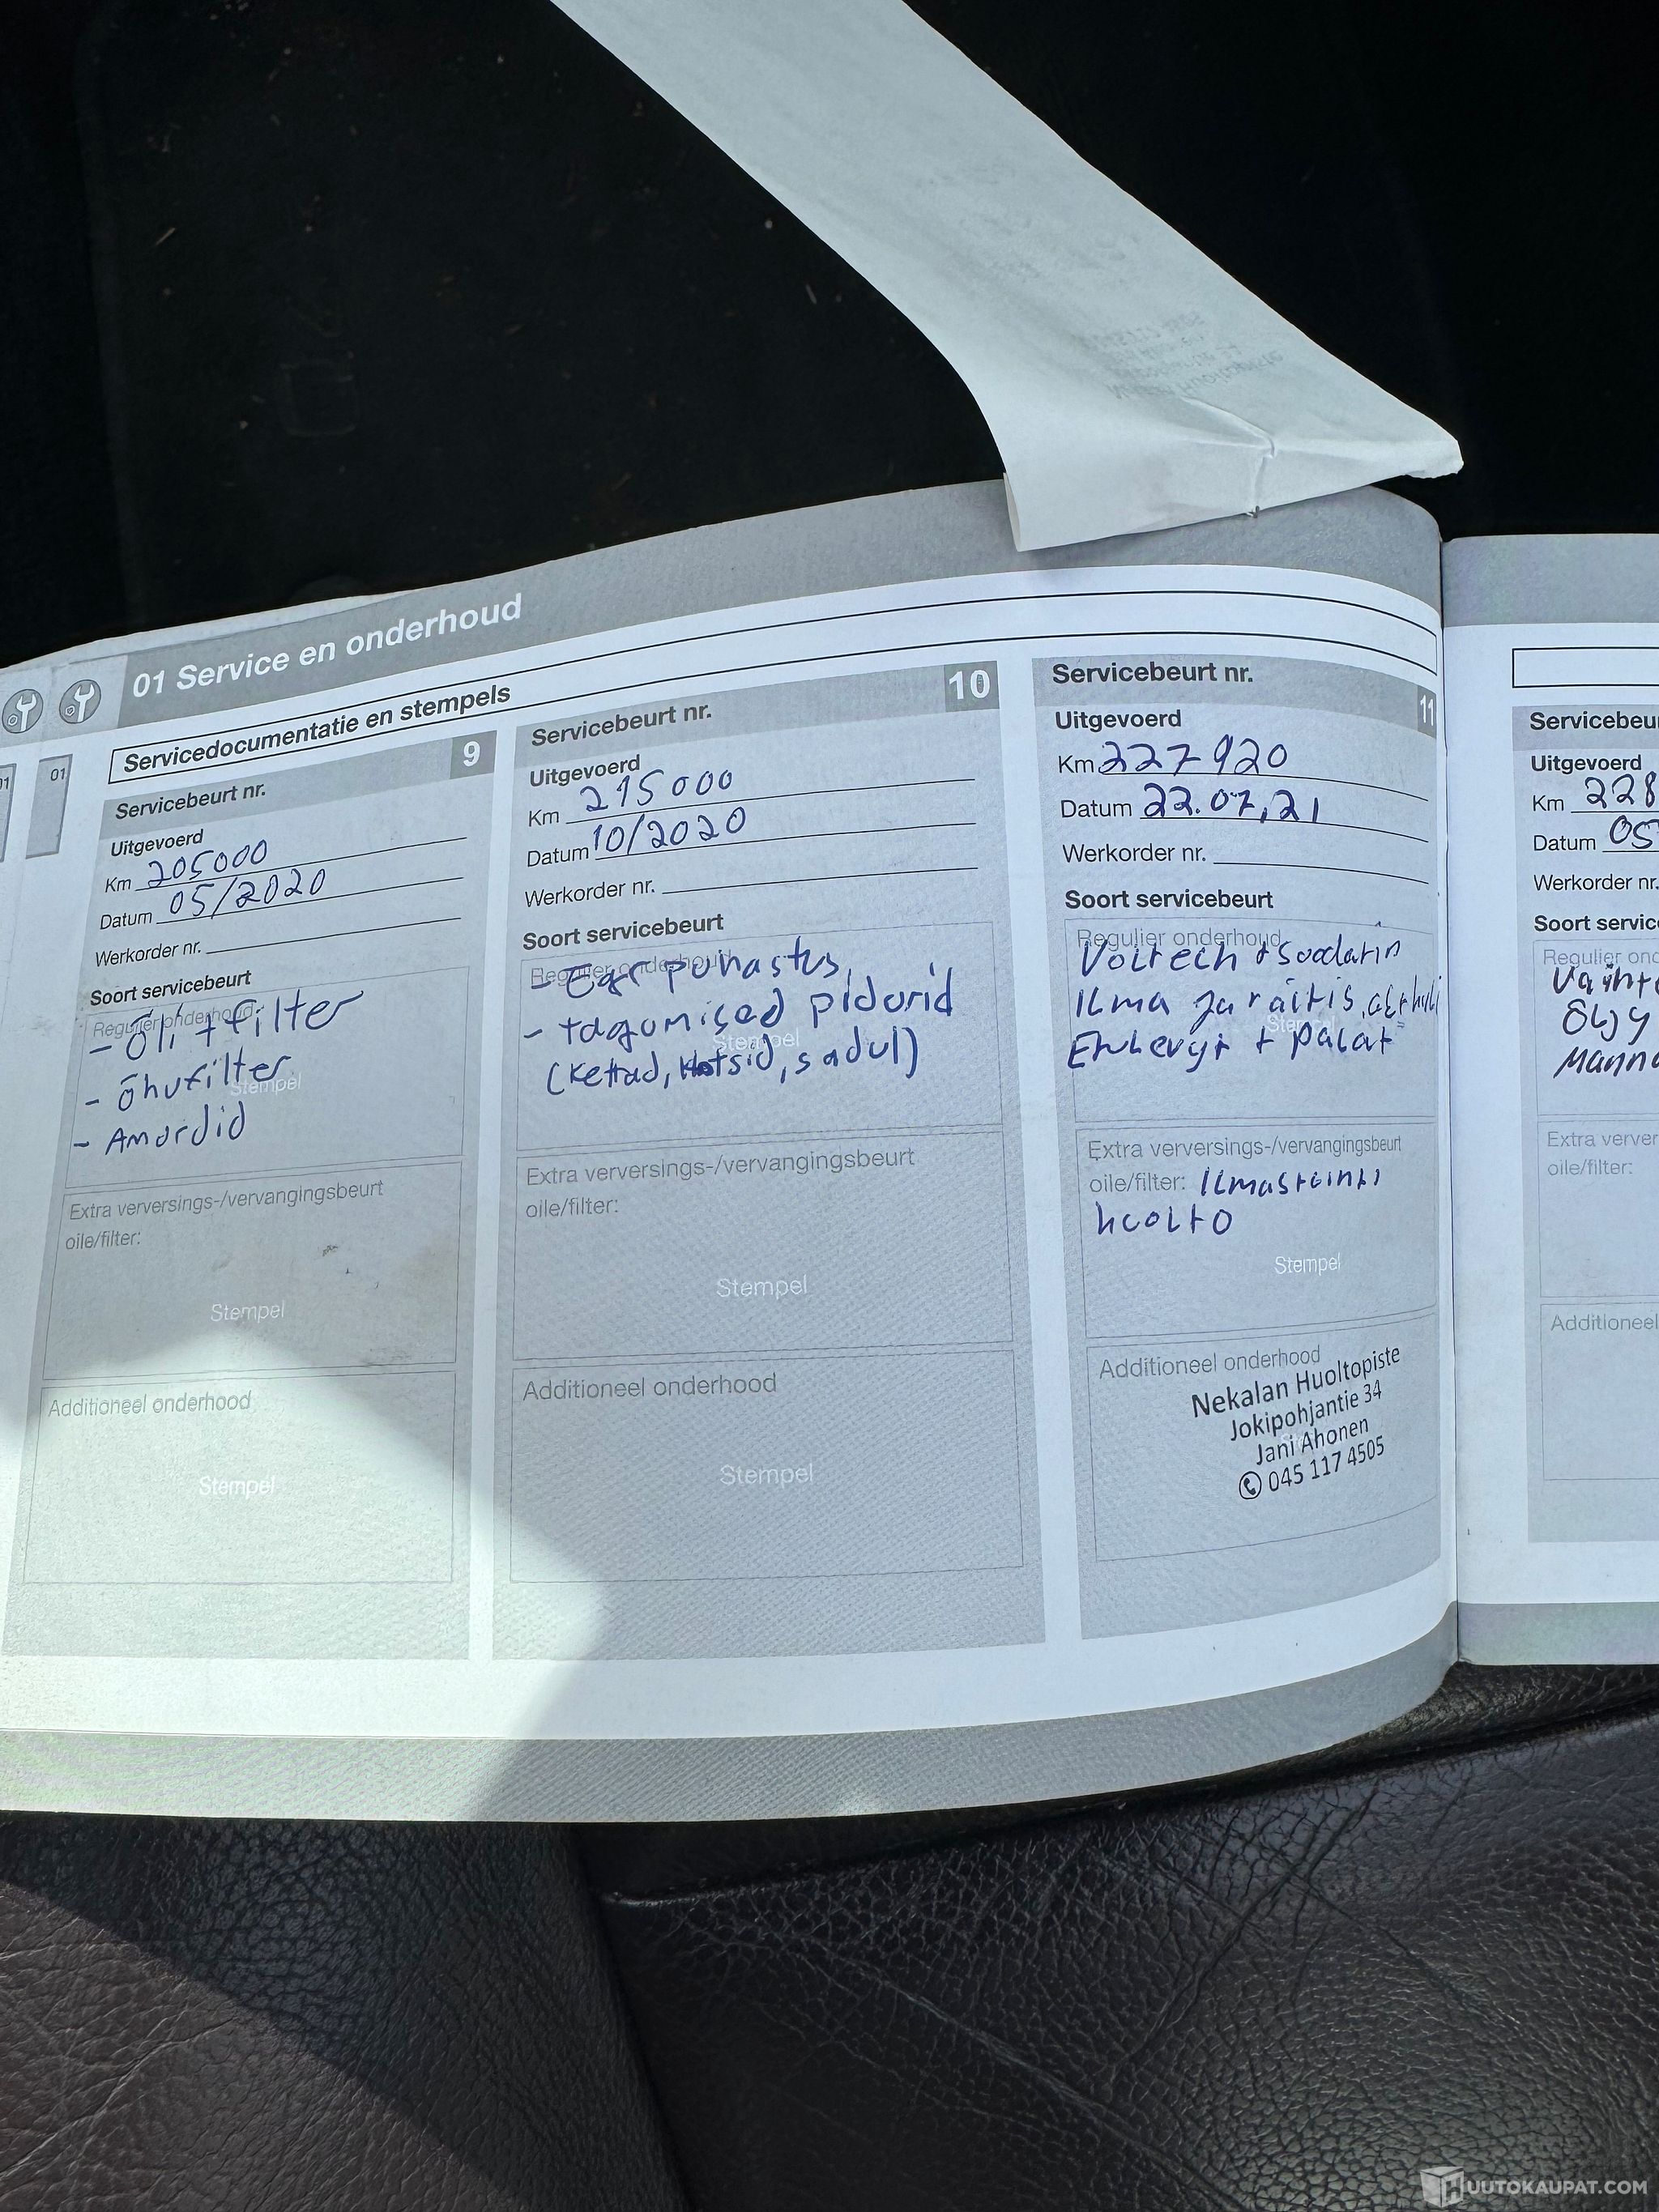 01 Service en onderhoud
Servicedocumentatie en stempels
01
01
9
Servicebeurt nr.
Uitgevoerd
Km 205000
Datum 05/2020
Werkorder nr.
Soort servicebeurt
Regulier onderhoud
- Õli + filter
- õhufilter
- Amordid
Stempel
Extra verversings-/vervangingsbeurt
oile/filter:
Stempel
Additioneel onderhoud
Stempel
10
Servicebeurt nr.
Uitgevoerd
Km 215000
Datum 10/2020
Werkorder nr.
Soort servicebeurt
Regulier onderhoud
- Egr puhastus,
- tagumised pidurid
Stempel
(Kettad, sadul)
Extra verversings-/vervangingsbeurt
oile/filter:
Stempel
Additioneel onderhoud
Stempel
Servicebeurt nr.
11
Uitgevoerd
Km 227920
Datum 22.07.21
Werkorder nr.
Soort servicebeurt
Regulier onderhoud
+ Suodatin
Ilma ja raitis
Etulevyt + Palat
Extra verversings-/vervangingsbeurt
oile/filter: Ilmastointi
huolto
Stempel
Additioneel onderhoud
Nekalan Huoltopiste
Jokipohjantie 34
Jani Ahonen
045 117 4505
Servicebeu
Uitgevoerd
Km 228
Datum 05
Werkorder nr.
Soort servic
Regulier ond
Vaiht
Öljy
Mann
Extra verver
oile/filter:
Additioneel
HUUTOKAUPAT.COM